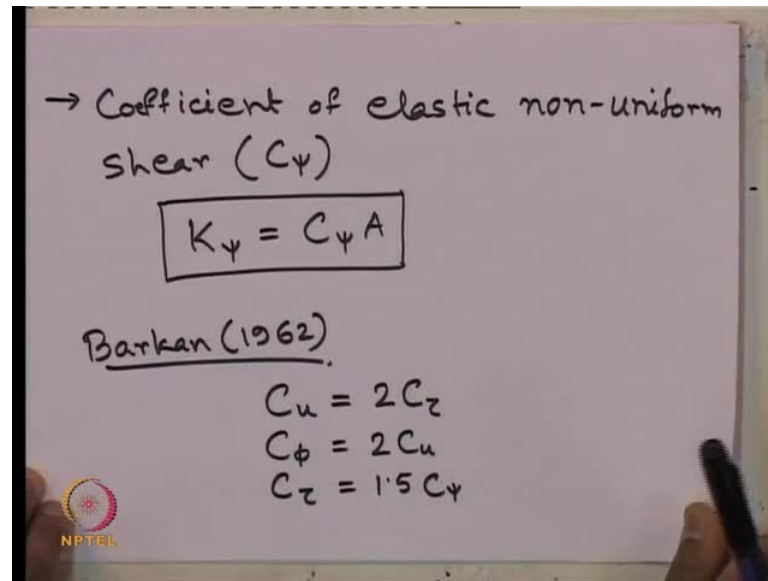 → Coefficient of elastic non-uniform
shear (Cψ)
Kψ = Cψ A
Barkan (1962).
Cu = 2Cτ
Cφ = 2Cu
Cτ = 1.5 Cψ
NPTEL